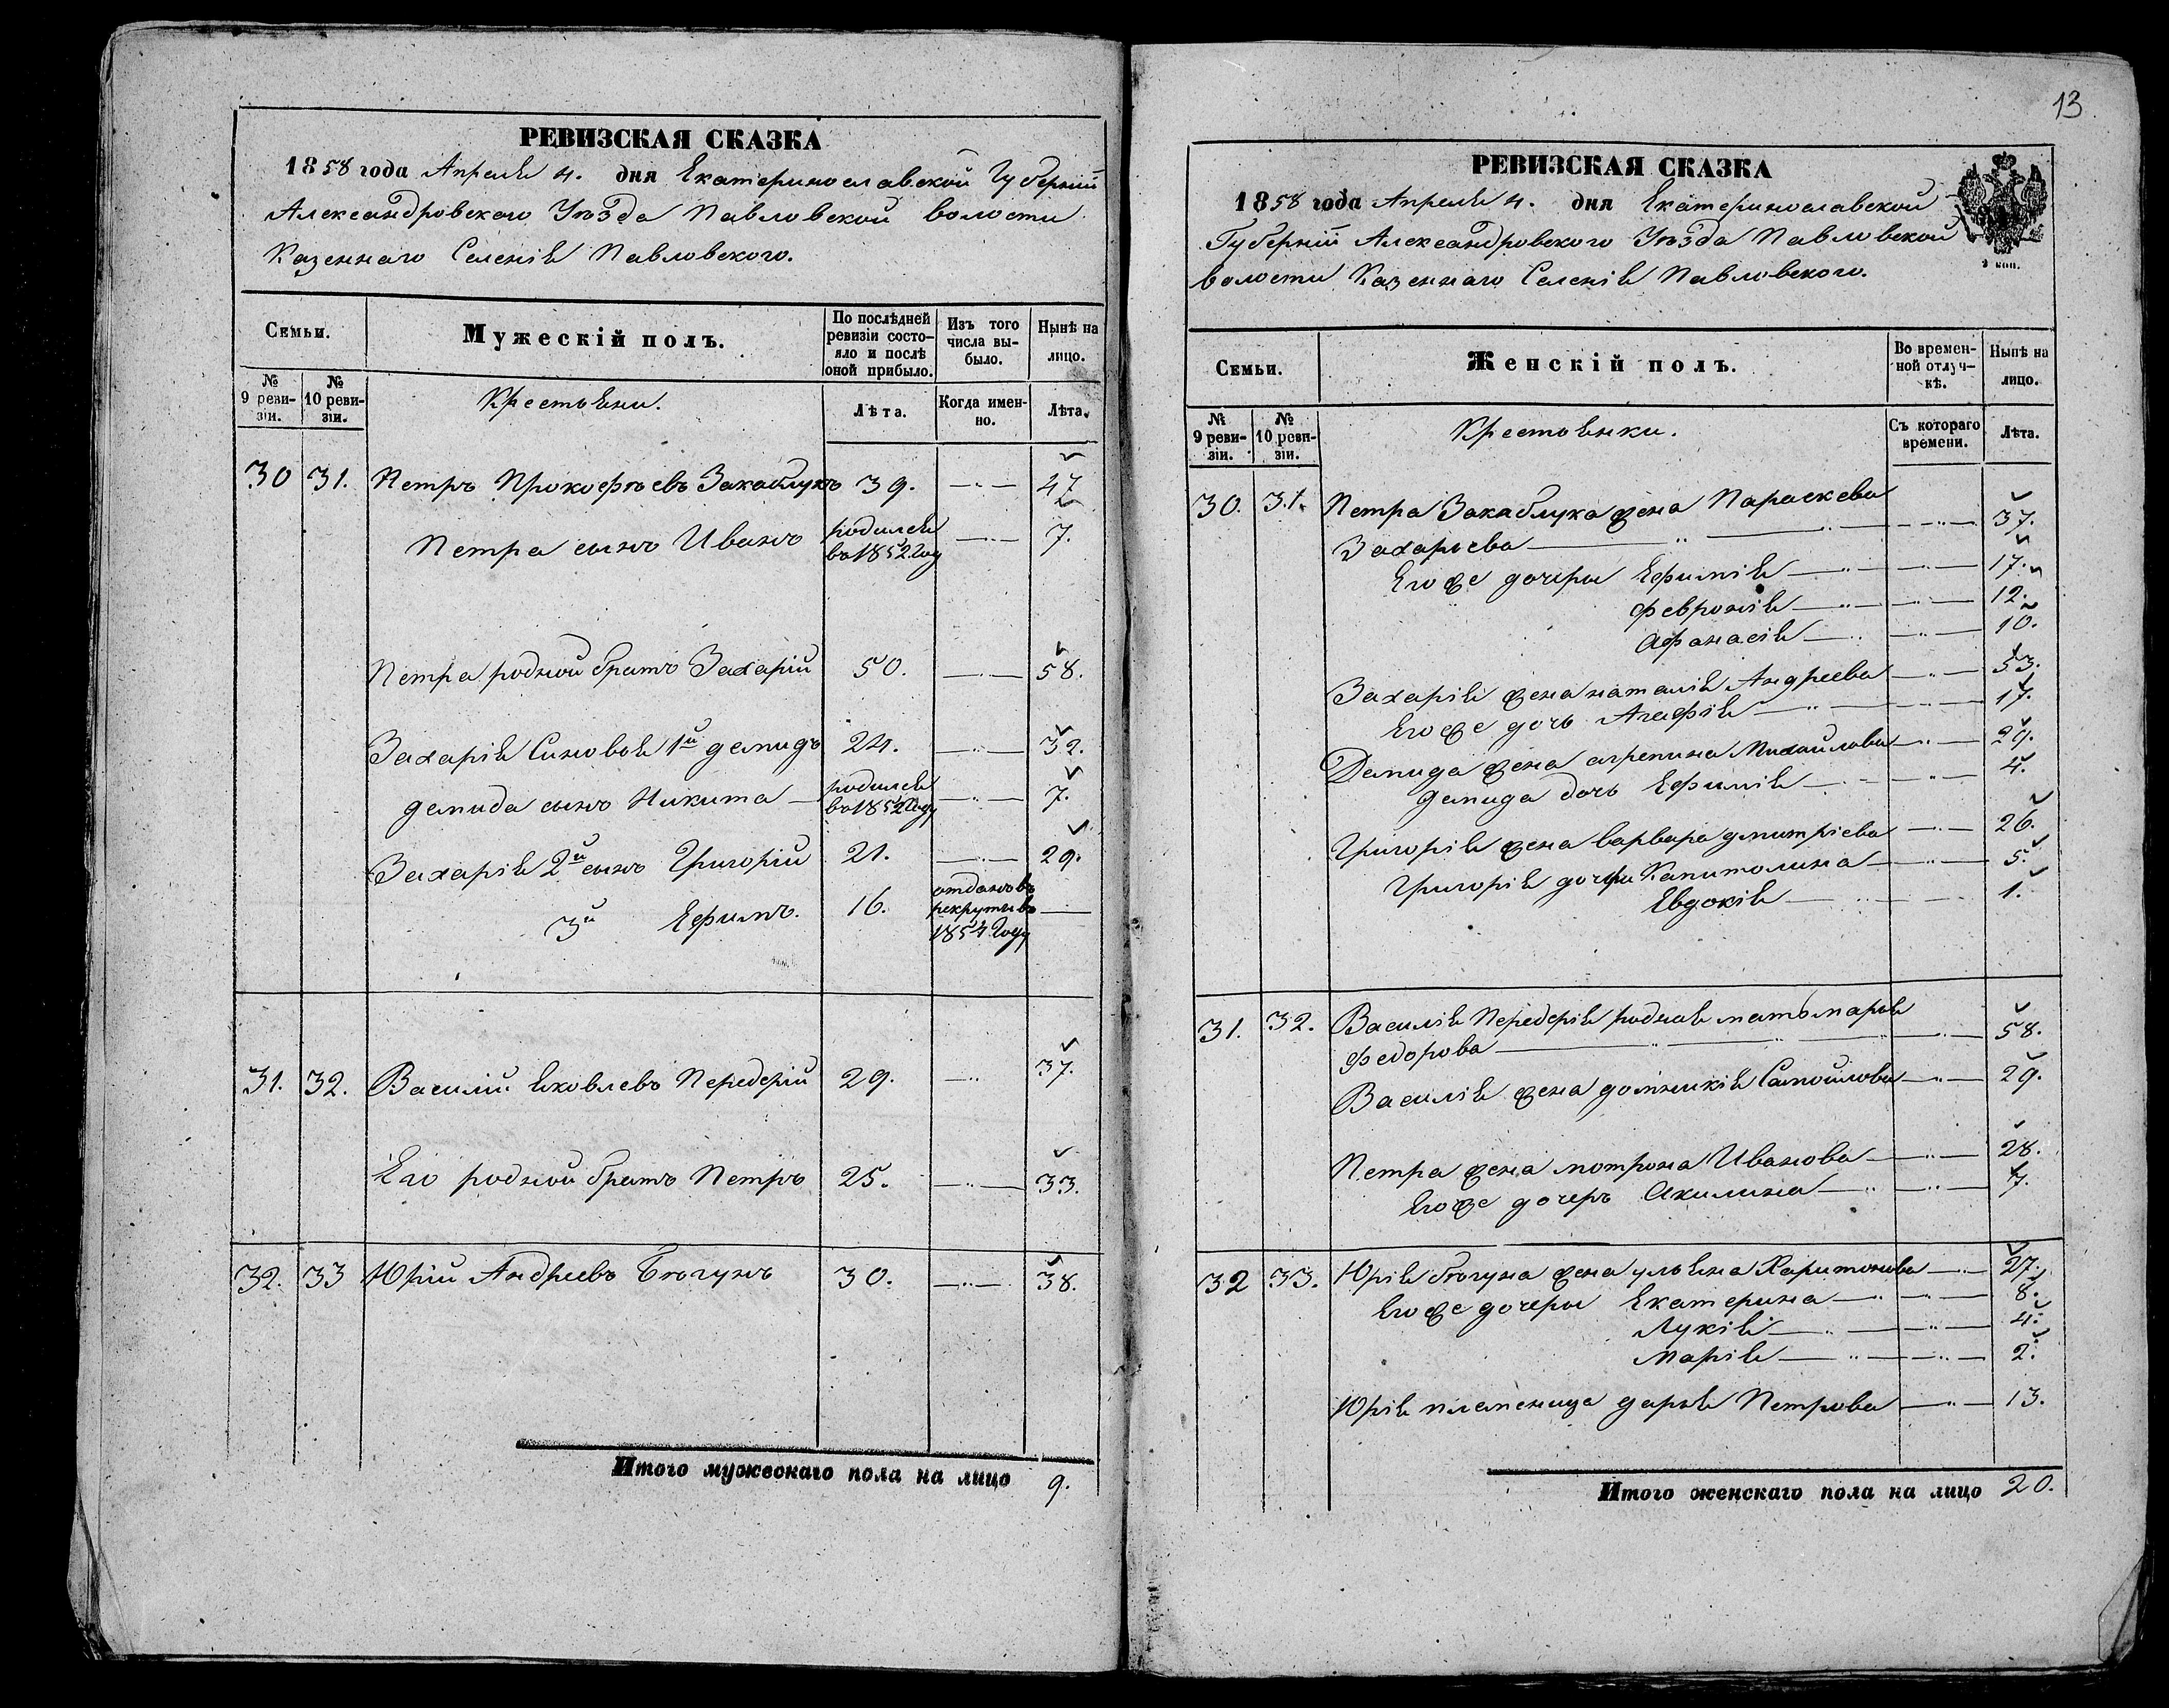 РЕВИЗСКАЯ СКАЗКА
1858 года Апреля 4. дня Екатеринославской Губерніи
Александровского Уѣзда Павловской волости
Казеннаго Селенія Павловского.
Семьи.
Мужескій полъ.
По послѣдней ревизіи состояло и послѣ оной прибыло.
Изъ того числа выбыло.
Нынѣ на лицо.
№ 9 ревизіи.
№ 10 ревизіи.
Крестьяни.
Лѣта.
Когда именно.
Лѣта.
30 31. Петръ Прокофьевъ Закаблукъ 39. 47
Петра сынъ Иванъ родился въ 1852 году 7.
Петра родной братъ Захарій 50. 58.
Захарія Синовья 1й демидъ 24. 32.
демида сынъ Никита родился въ 1852 году 7.
Захарія 2й сынъ Григорій 21. 29.
3й Ефимъ. 16. отданъ въ рекруты въ 1854 году
31. 32. Василій Яковлевъ Передерій 29. 37.
Его родной братъ Петръ 25. 33.
32. 33 Юрій Андреевъ Бѣгунъ 30. 38.
Итого мужескаго пола на лицо 9.
13
РЕВИЗСКАЯ СКАЗКА
1858 года Апреля 4. дня Екатеринославской
Губерніи Александровского Уѣзда Павловской
волости Казеннаго Селенія Павловского.
Семьи.
Женскій полъ.
Во временной отлучкѣ.
Нынѣ на лицо.
№ 9 ревизіи.
№ 10 ревизіи.
Крестьянки.
Съ котораго времени.
Лѣта.
30. 31. Петра Закаблука жена Параскева
Захарьева 37.
Его же дочеры Ефимія 17.
Февронія 12.
Афанасія 10.
Захарія жена наталія Андреева 53.
Его же дочь Агафія 17.
Демида жена агрепина Михайлова 29.
Демида дочь Ефимія 4.
Григорія жена варвара дмитріева 26.
Григорія дочеры Капитолина 5.
Евдокія 1.
31. 32. Василія Передерія родная мать марья
Федорова 58.
Василія жена домникія Самойлова 29.
Петра жена мотрона Иванова 28.
Его же дочеръ Акилина 7.
32 33. Юрія бѣгуна жена ульяна Харитонова 27.
Его же дочеры Екатерина 8.
Лукія 4.
Марія 2.
Юрія племеница дарья Петрова 13.
Итого женскаго пола на лицо 20.